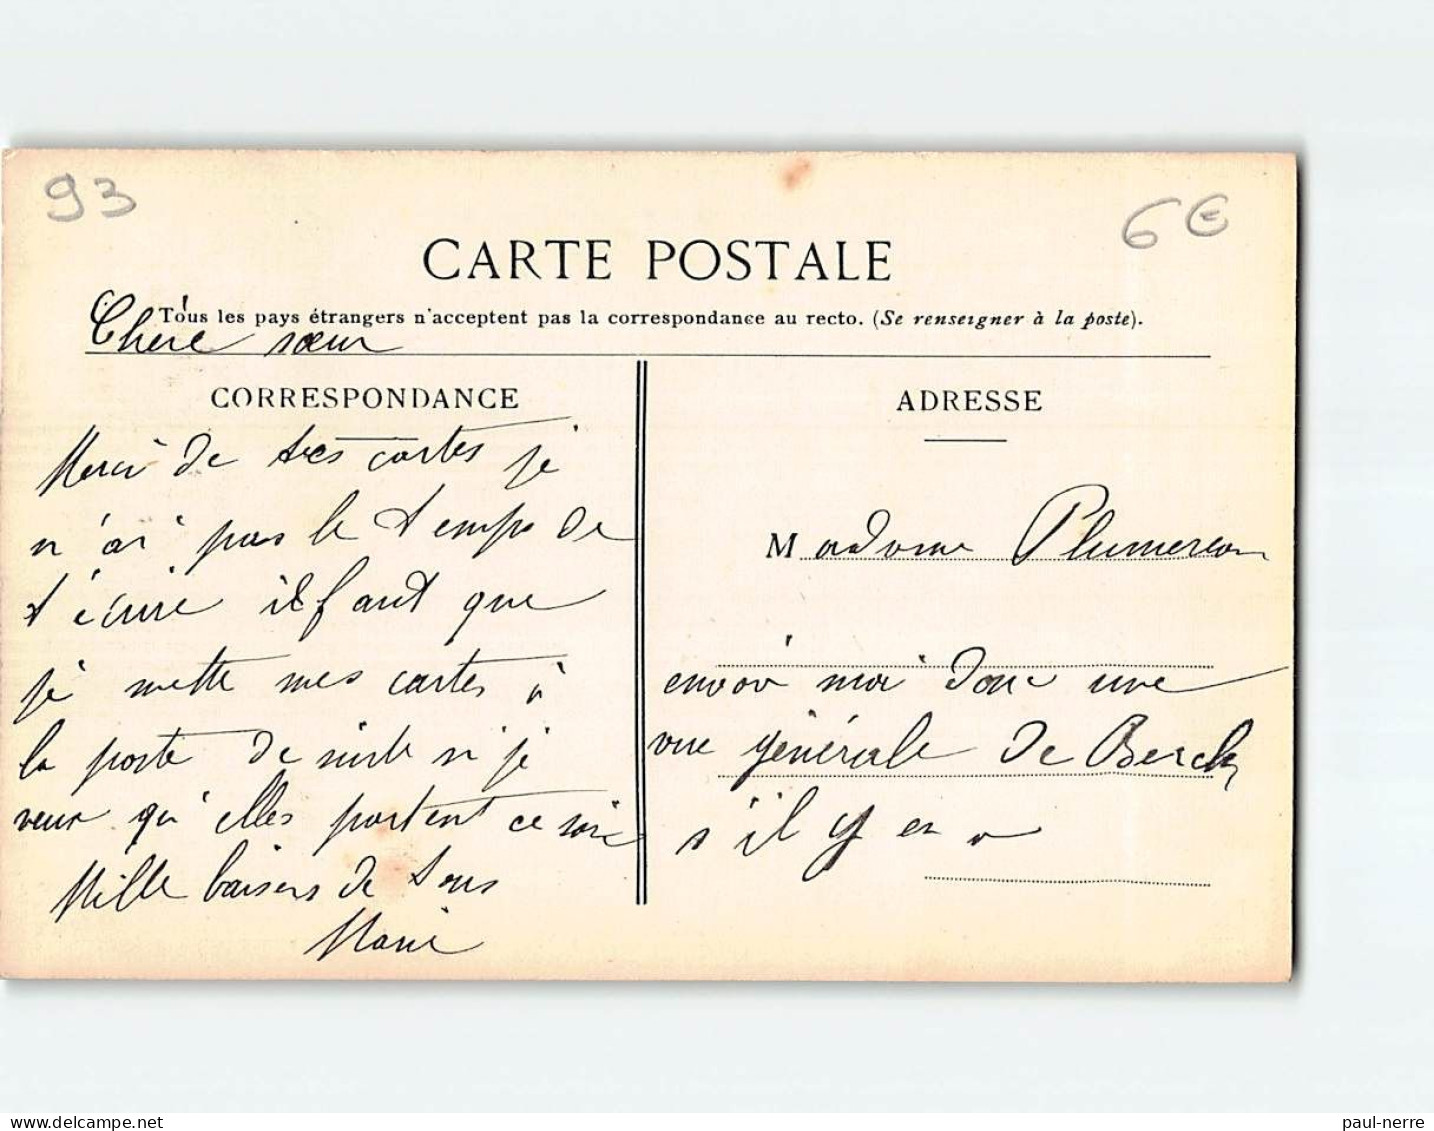 93
6€
CARTE POSTALE
Tous les pays étrangers n'acceptent pas la correspondance au recto. (Se renseigner à la poste).
Chère sœur
CORRESPONDANCE
Merci de tes cartes je
n'ai pas le temps de
t'écrire il faut que
je mette mes cartes à
la poste de suite si je
veux qu'elles partent ce soir
Mille baisers de tous
Marie
ADRESSE
Madame Plumereau
envoi moi donc une
vue générale de Berck
s'il y en a
paul-nerre